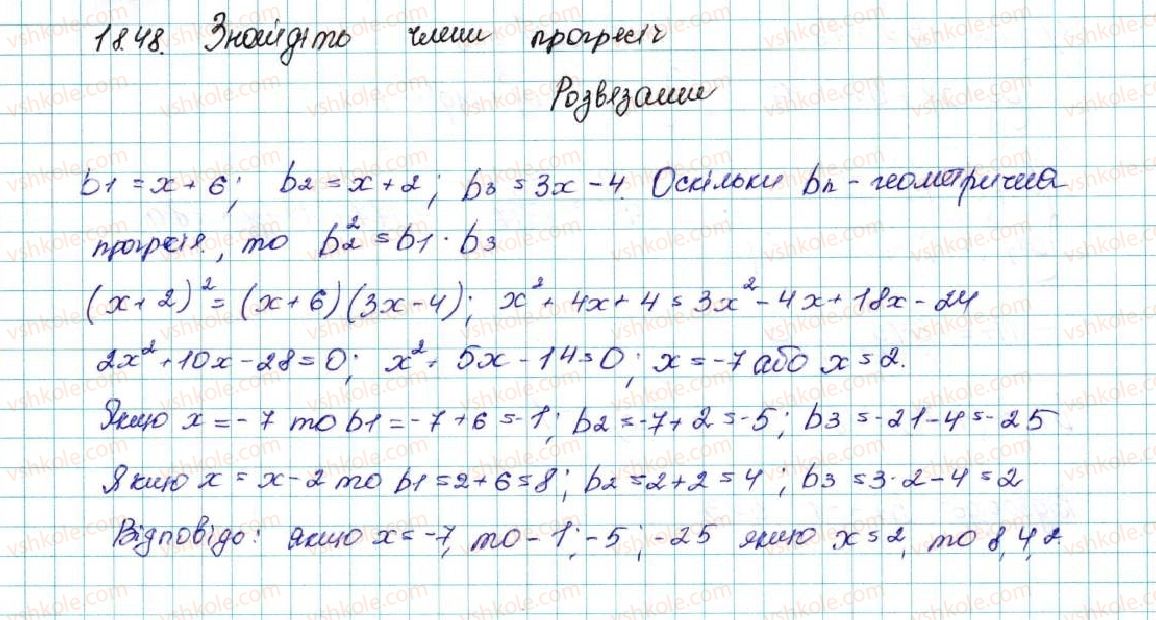 18.48. Знайдіть члени прогресії
Розвязання
b1 = x + 6; b2 = x + 2; b3 = 3x - 4. Оскільки bn - геометрична
прогресія, то b2² = b1 · b3
(x + 2)² = (x + 6)(3x - 4); x² + 4x + 4 = 3x² - 4x + 18x - 24
2x² + 10x - 28 = 0; x² + 5x - 14 = 0; x = -7 або x = 2.
Якщо x = -7 то b1 = -7 + 6 = -1; b2 = -7 + 2 = -5; b3 = -21 - 4 = -25
Якщо x = x - 2 то b1 = 2 + 6 = 8; b2 = 2 + 2 = 4; b3 = 3 · 2 - 4 = 2
Відповідь: якщо x = -7, то -1; -5; -25 якщо x = 2, то 8, 4, 2.